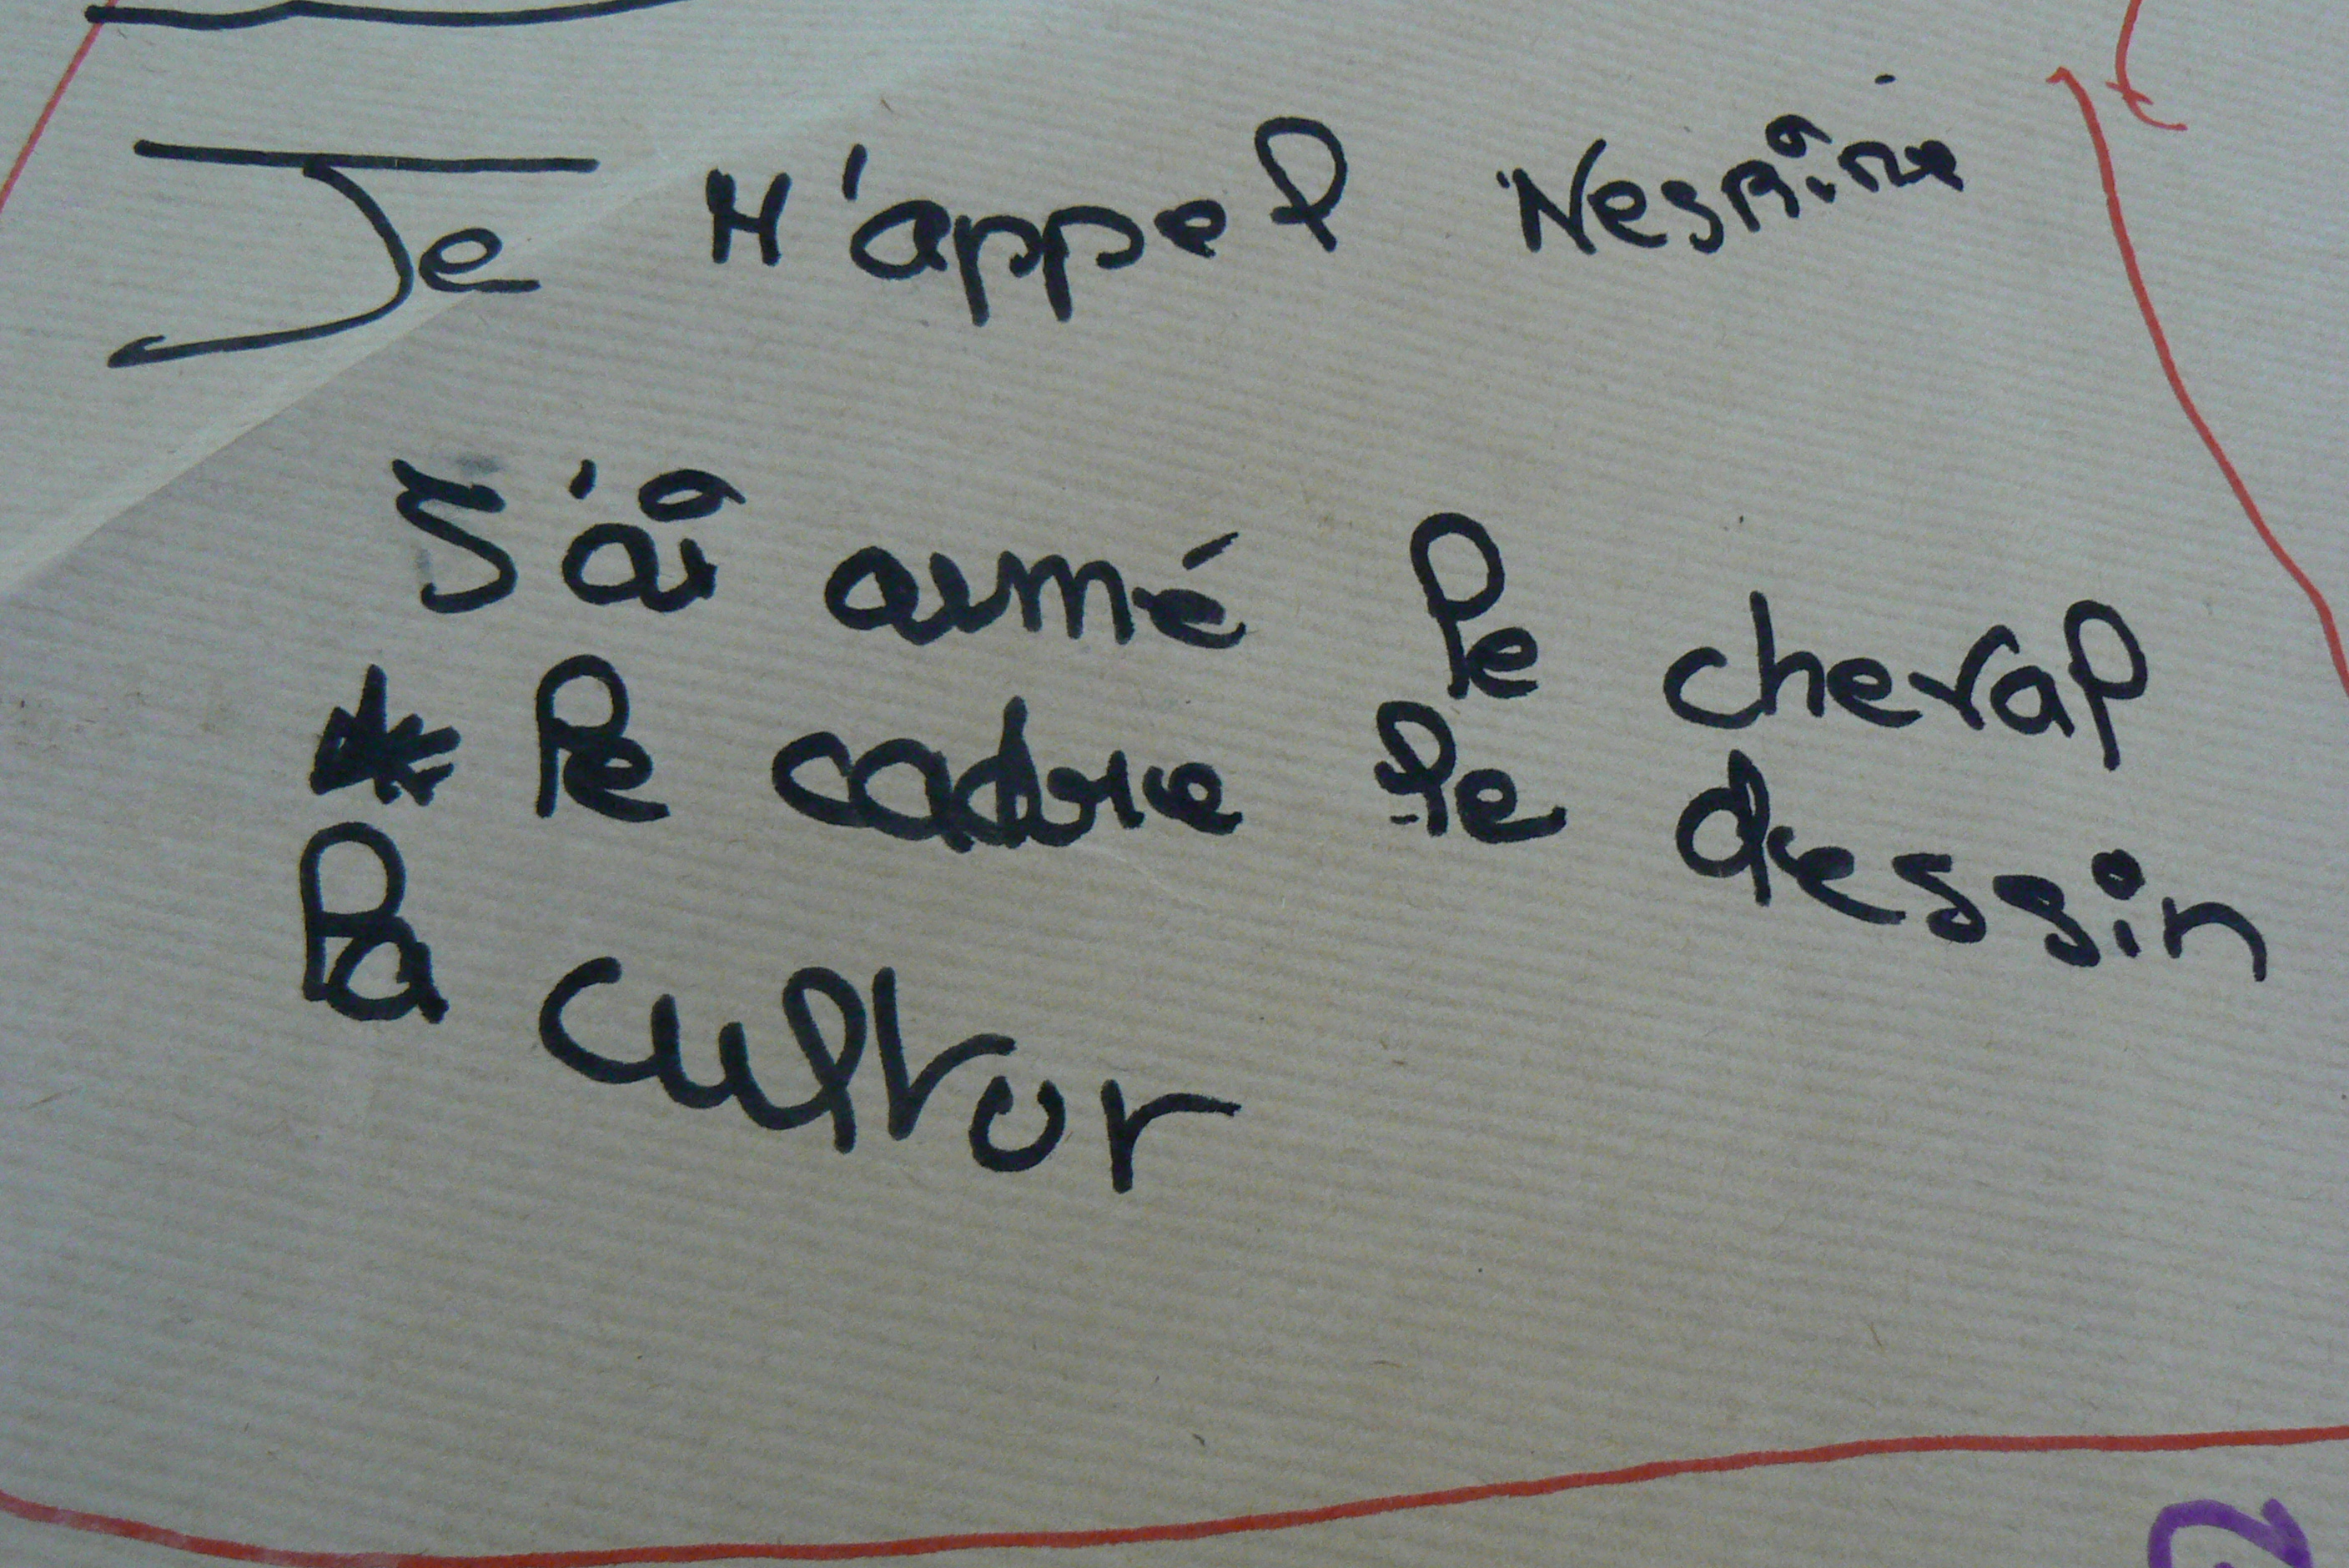 Je M'appel Nesrine
J'ai aimé le cheval
le cadre le dessin
la cultur